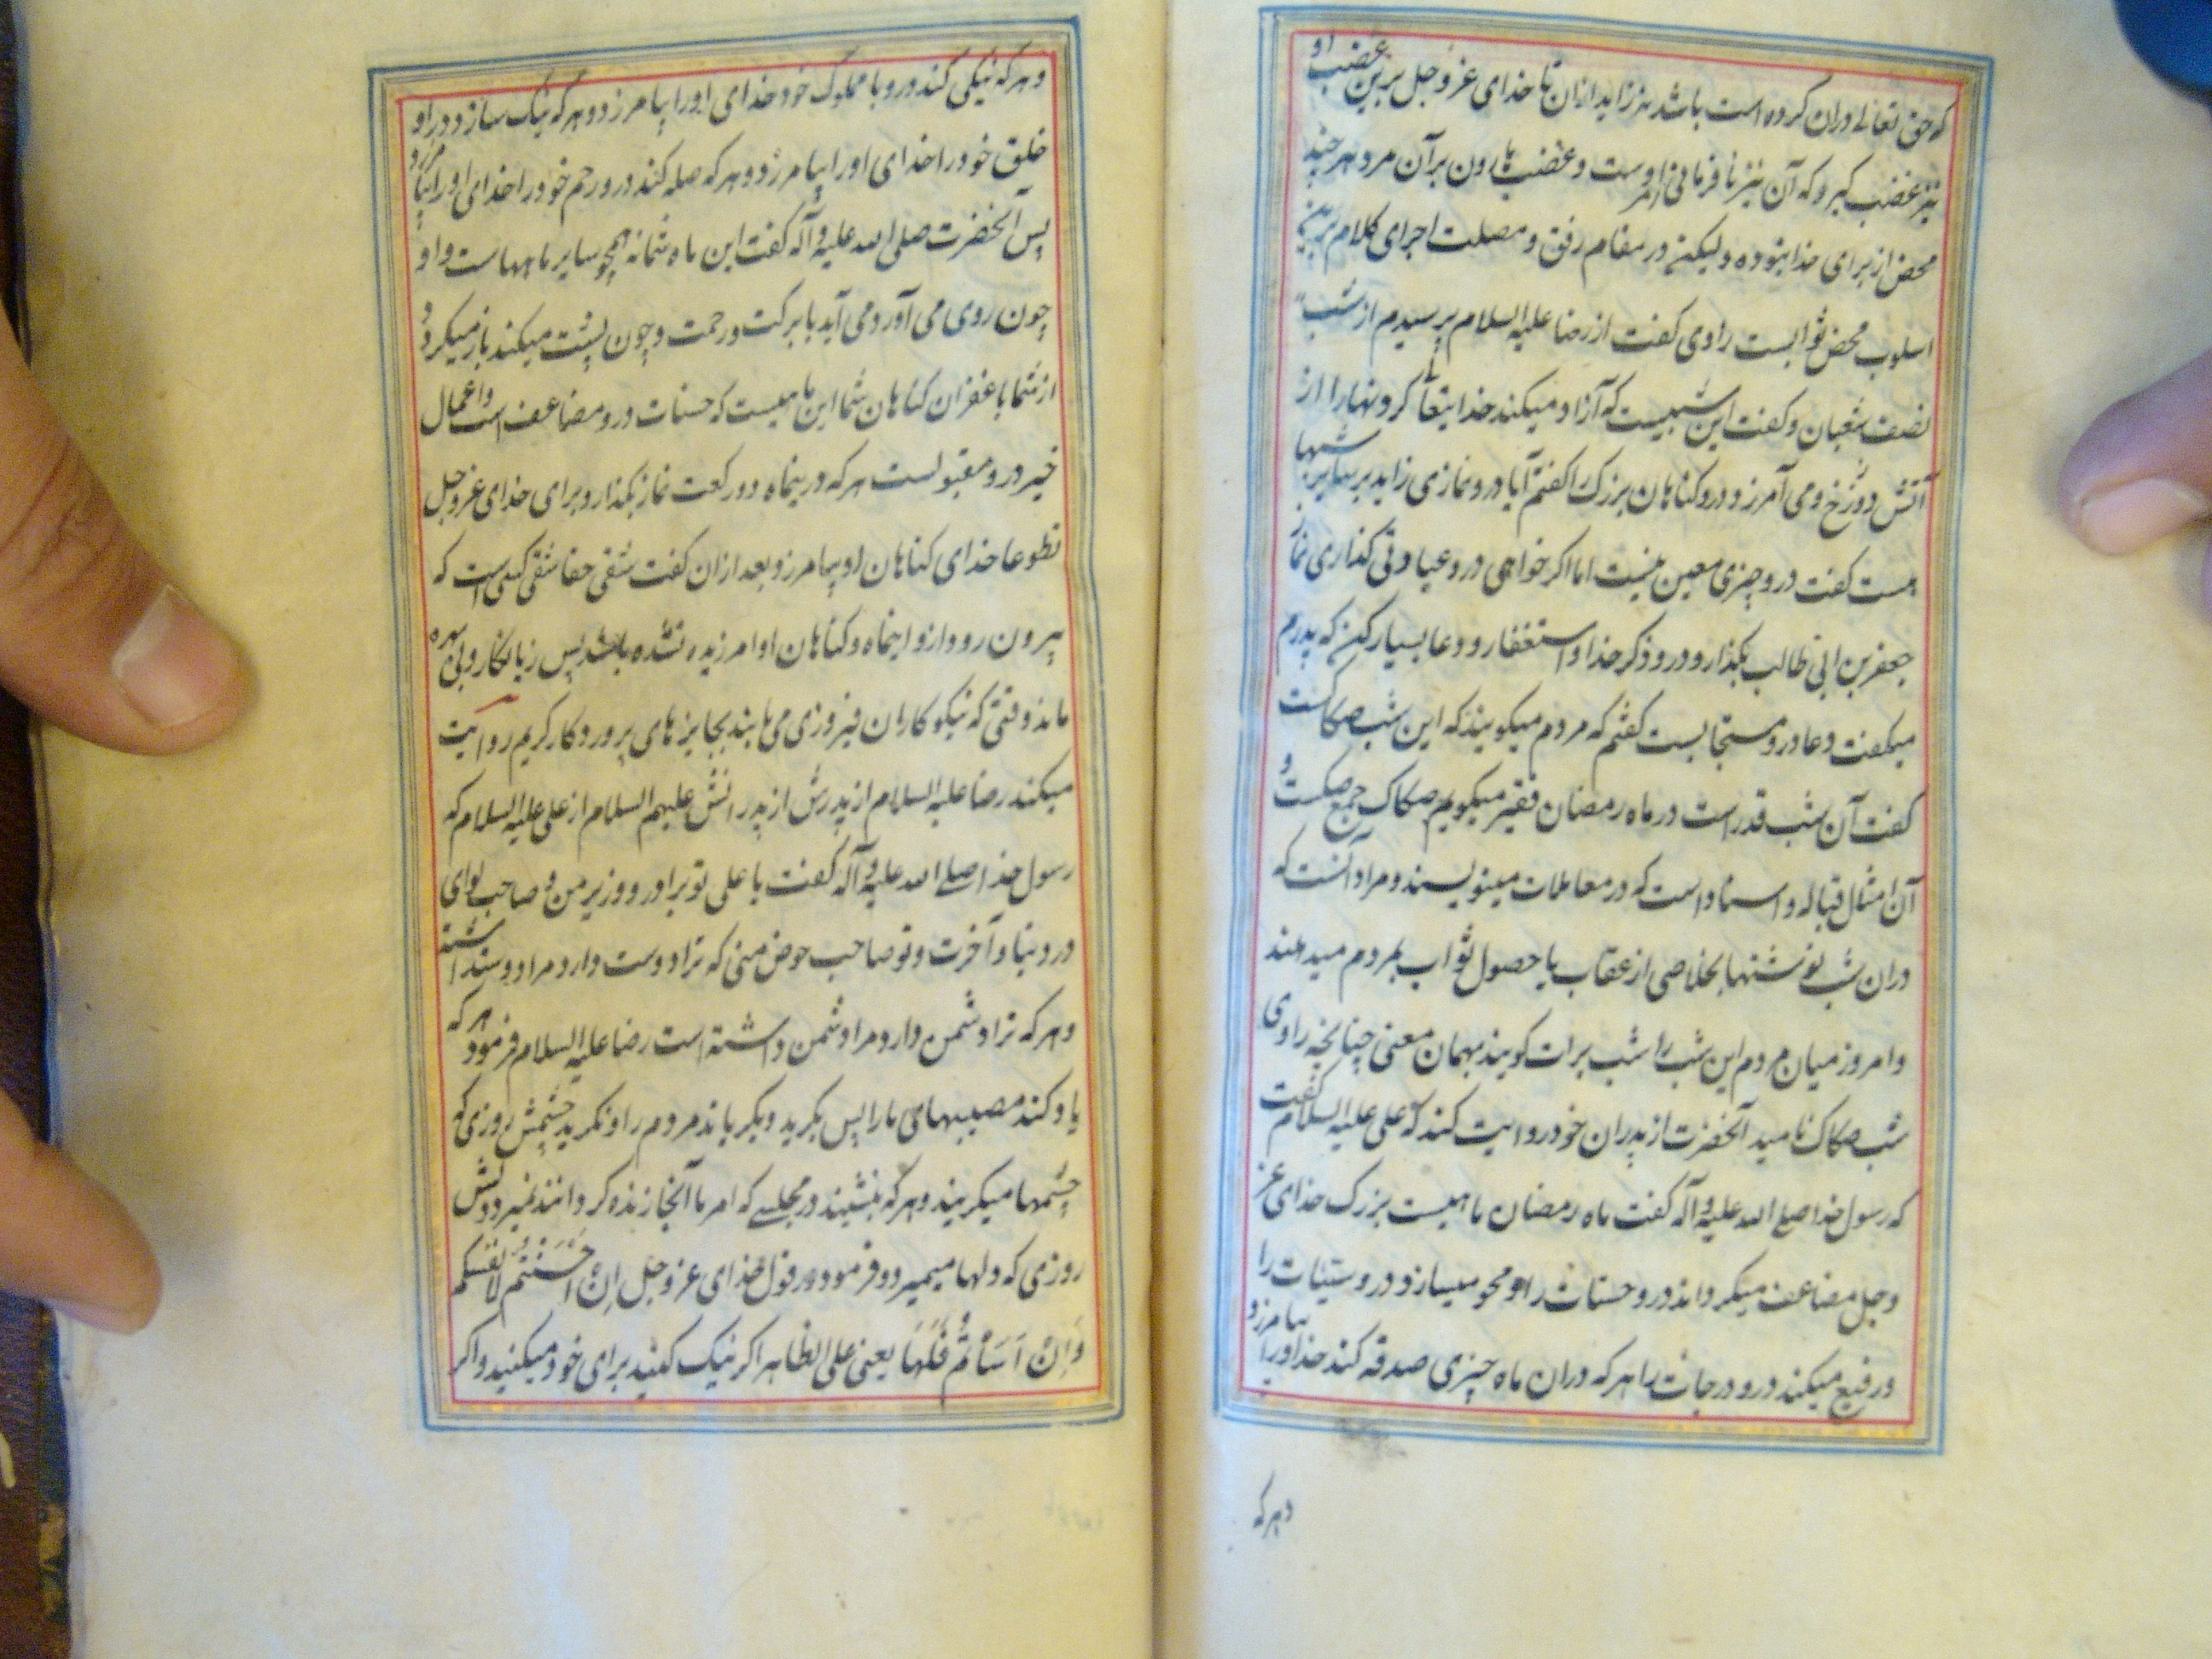 که حق تعالی دران کرده است باشد نه زاید ازان تا خدای عز و جل برین غضب او
نیز غضب گیرد که آن نیز نافرمانی امر اوست و غضب هارون بر آن مرد هر چند
محض از برای خدا نبوده و لیکن در مقام رفق و مصلحت اجرای کلام برین
اسلوب محض ثوابست راوی گفت از رضا علیه السلام پرسیدم از شب
نصف شعبان و گفت این شبیست که آزاد میکند خدایتعالی گردنها را از
آتش دوزخ و می آمرزد درو گناهان بزرگ را گفتم آیا درو نمازی زاید بر سایر شبها
هست گفت درو چیزی معین نیست اما اگر خواهی درو عبادتی گذاری نماز
جعفر بن ابی طالب بگذار و درو ذکر خدا و استغفار و دعا بسیار کن که پدرم
میگفت دعا درو مستجابست گفتم که مردم میگویند که این شب صکاکست
گفت آن شب قدر است در ماه رمضان فقیر میگویم صکاک جمع صکست و
آن امثال قباله و اسناد است که در معاملات مینویسند و مراد آنست که
دران شب نوشتها بخلاصی از عقاب یا حصول ثواب بمردم میدهند
و امروز میان مردم این شب را شب برات گویند بهمان معنی چنانچه راوی
شب صکاک نامید آنحضرت از پدران خود روایت کند که علی علیه السلام گفت
که رسول خدا صلی الله علیه و آله گفت ماه رمضان ماهیست بزرگ خدای عز
و جل مضاعف میگرداند درو حسنات را و محو میسازد درو سیئات را
و رفیع میکند درو درجات را هر که دران ماه چیزی صدقه کند خدا او را بیامرزد
و هر که
و هر که نیکی کند درو با مملوک خود خدای او را بیامرزد و هر که نیک سازد درو
خلق خود را خدای او را بیامرزد و هر که صله کند درو رحم خود را خدای او را بیامرزد
پس آنحضرت صلی الله علیه و آله گفت این ماه شما نه همچو سایر ماههاست و او
چون روی می آورد می آید با برکت و رحمت و چون پشت میکند باز میگردد
از شما با غفران گناهان شما این ماهیست که حسنات درو مضاعف است و اعمال
خیر درو مقبولست هر که درینماه دو رکعت نماز بگذارد برای خدای عز و جل
تطوعا خدای گناهان او بیامرزد بعد ازان گفت شقی حقا شقی کسی است که
بیرون رود ازو اینماه و گناهان او امرزیده نشده باشد پس زیانکار و بی بهره
ماند وقتی که نیکوکاران فیروزی می یابند بجایزهای پروردگار کریم روایت
میکند رضا علیه السلام از پدرش از پدرانش علیهم السلام از علی علیه السلام که
رسول خدا صلی الله علیه و آله گفت یا علی تو برادر و وزیر من و صاحب لوای
در دنیا و آخرت و تو صاحب حوض منی که ترا دوست دارد مرا دوست داشته
و هر که ترا دشمن دارد مرا دشمن داشته است رضا علیه السلام فرمود هر که
یاد کند مصیبهای ما را پس بگرید و بگریاند مردم را و نگرید چشمش روزی که
چشمها میگریند و هر که بنشیند در مجلسی که امر ما آنجا زنده گردانند نمیرد دلش
روزی که دلها میمیرد و فرمود در قول خدای عز و جل اِنْ اَحْسَنْتُم لاَنفُسِكم
وَاِنْ اَسَأتُمْ فَلَهَا یعنی علی الظاهر اگر نیک کنید برای خود میکنید و اگر